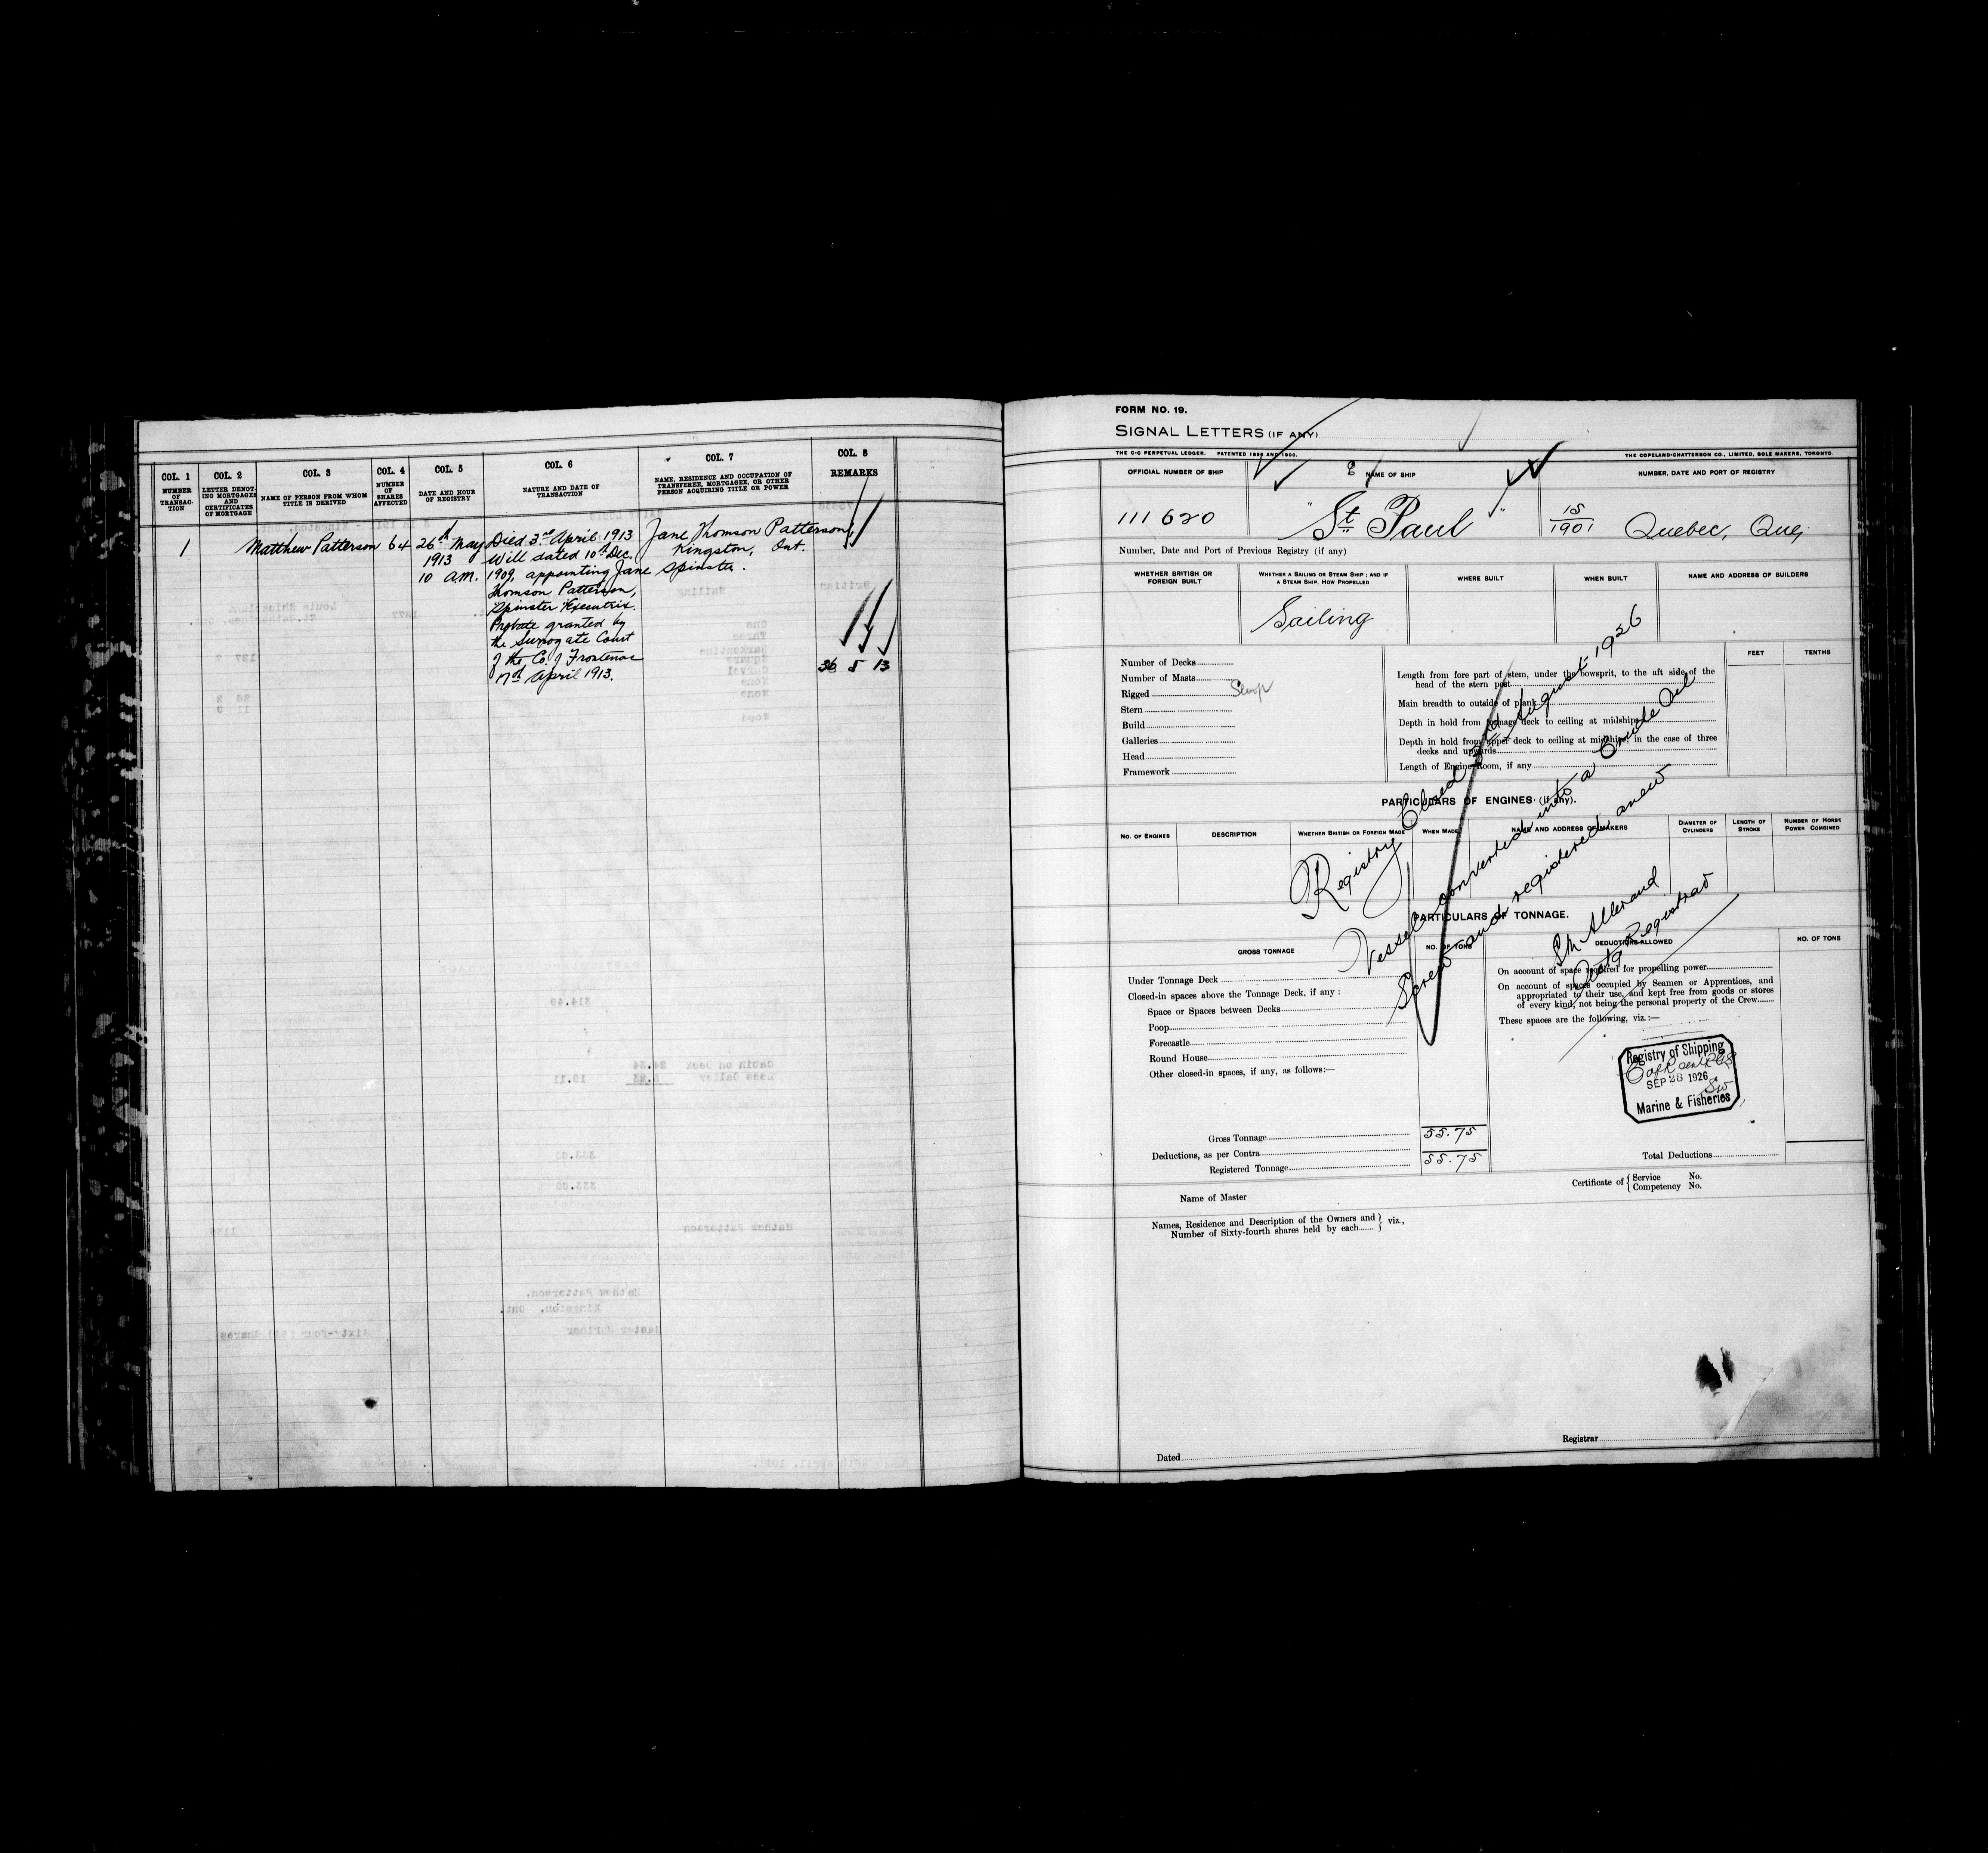 COL. 1
NUMBER OF TRANSAC- TION
COL. 2
LETTER DENOT- ING MORTGAGES AND CERTIFICATES OF MORTGAGE
COL. 3
NAME OF PERSON FROM WHOM TITLE IS DERIVED
COL. 4
NUMBER OF SHARES AFFECTED
COL. 5
DATE AND HOUR OF REGISTRY
COL. 6
NATURE AND DATE OF TRANSACTION
COL. 7
NAME, RESIDENCE AND OCCUPATION OF TRANSFEREE, MORTGAGEE, OR OTHER PERSON ACQUIRING TITLE OR POWER
COL. 8
REMARKS
1 Matthew Patterson 64 26th May Died 3rd April 1913 Jane Thomson Patterson,
1913 Will dated 10th Dec. Kingston, Ont.
10 A.M. 1909, appointing Jane Spinster.
Thomson Patterson,
Spinster Executrix.
Probate granted by
the Surrogate Court
of the Co. of Frontenac
17th April 1913.
26 5 13
FORM NO. 19.
SIGNAL LETTERS (IF ANY)
THE C-C PERPETUAL LEDGER. PATENTED 1898 AND 1900.
THE COPELAND-CHATTERSON CO., LIMITED, SOLE MAKERS, TORONTO.
OFFICIAL NUMBER OF SHIP
NAME OF SHIP
NUMBER, DATE AND PORT OF REGISTRY
111620
"St Paul"
15/1901 Quebec, Que,
Number, Date and Port of Previous Registry (if any)
WHETHER BRITISH OR FOREIGN BUILT
WHETHER A SAILING OR STEAM SHIP; AND IF A STEAM SHIP, HOW PROPELLED
WHERE BUILT
WHEN BUILT
NAME AND ADDRESS OF BUILDERS
Sailing
Number of Decks
Number of Masts
Rigged Sloop
Stern
Build
Galleries
Head
Framework
FEET
TENTHS
Length from fore part of stem, under the bowsprit, to the aft side of the
head of the stern post
Main breadth to outside of plank
Depth in hold from tonnage deck to ceiling at midships
Depth in hold from upper deck to ceiling at midships, in the case of three
decks and upwards
Length of Engine Room, if any
PARTICULARS OF ENGINES (if any).
NO. OF ENGINES
DESCRIPTION
WHETHER BRITISH OR FOREIGN MADE
WHEN MADE
NAME AND ADDRESS OF MAKERS
DIAMETER OF CYLINDERS
LENGTH OF STROKE
NUMBER OF HORSE POWER COMBINED
Registry Closed 3rd August 1926
Vessel converted into a Crude Oil
Screw and registered anew
Actg Registrar
PARTICULARS OF TONNAGE.
GROSS TONNAGE
NO. OF TONS
DEDUCTIONS ALLOWED
NO. OF TONS
Under Tonnage Deck
Closed-in spaces above the Tonnage Deck, if any:
Space or Spaces between Decks
Poop
Forecastle
Round House
Other closed-in spaces, if any, as follows:—
Gross Tonnage 55.75
Deductions, as per Contra
Registered Tonnage 55.75
On account of space required for propelling power
On account of spaces occupied by Seamen or Apprentices, and
appropriated to their use, and kept free from goods or stores
of every kind, not being the personal property of the Crew
These spaces are the following, viz.:—
Registry of Shipping
SEP 28 1926
Marine & Fisheries
Total Deductions
Name of Master
Certificate of { Service No.
Competency No.
Names, Residence and Description of the Owners and } viz.,
Number of Sixty-fourth shares held by each
Registrar
Dated